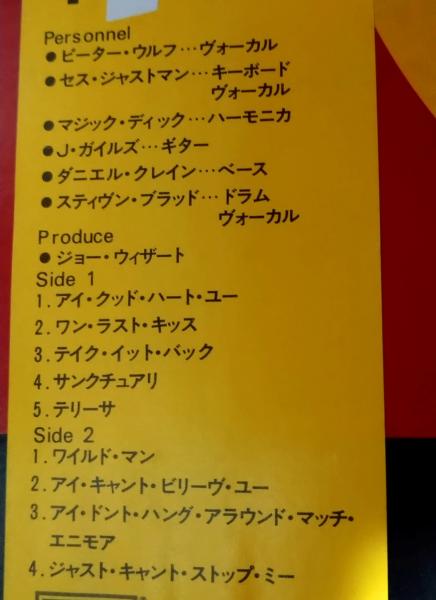 Personnel
●ピーター・ウルフ…ヴォーカル
●セス・ジャストマン…キーボード
ヴォーカル
●マジック・ディック…ハーモニカ
●J・ガイルズ…ギター
●ダニエル・クレイン…ベース
●スティヴン・ブラッド…ドラム
ヴォーカル
Produce
●ジョー・ウィザート
Side 1
1.アイ・クッド・ハート・ユー
2.ワン・ラスト・キッス
3.テイク・イット・バック
4.サンクチュアリ
5.テリーサ
Side 2
1.ワイルド・マン
2.アイ・キャント・ビリーヴ・ユー
3.アイ・ドント・ハング・アラウンド・マッチ・
エニモア
4.ジャスト・キャント・ストップ・ミー